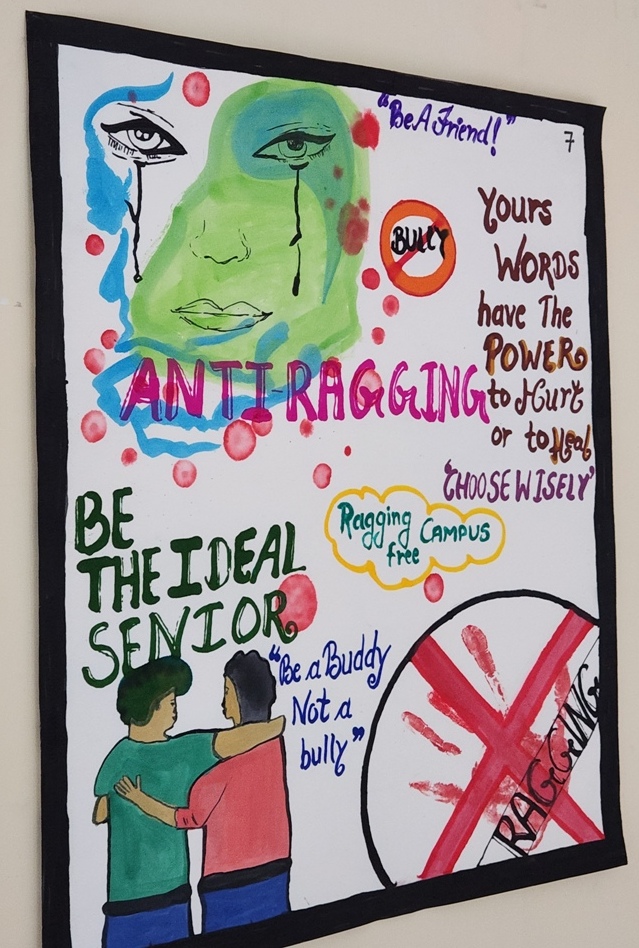 "Be A Friend!"
7
BULLY
Yours
WORDS
have The
POWER
to Hurt
or to Heal
'CHOOSE WISELY'
ANTI-RAGGING
Ragging CAMPUS
free
BE
THE IDEAL
SENIOR
"Be a Buddy
Not a
bully"
RAGGING